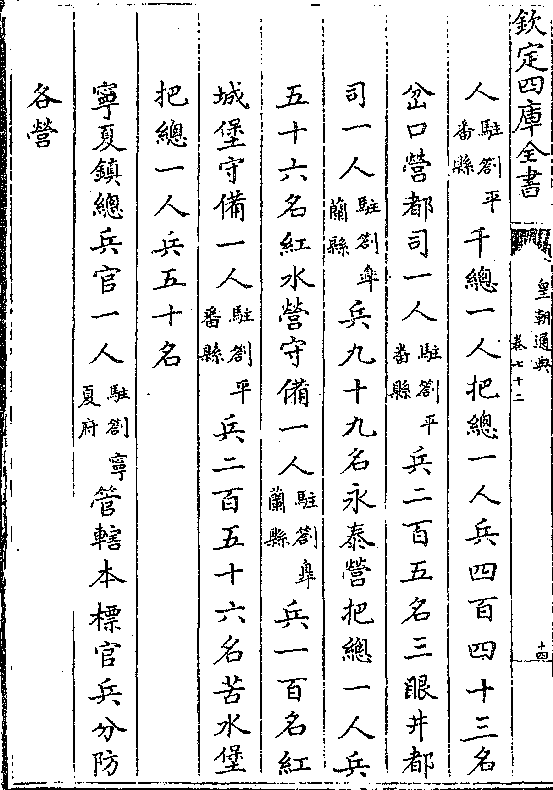 欽定四庫全書
皇朝通典
卷七十二
十四
人駐劄平番縣千總一人把總一人兵四百四十三名
岔口營都司一人駐劄平番縣兵二百五名三眼井都
司一人駐劄臯蘭縣兵九十九名永泰營把總一人兵
五十六名紅水營守備一人駐劄臯蘭縣兵一百名紅
城堡守備一人駐劄平番縣兵二百五十六名苦水堡
把總一人兵五十名
寧夏鎮總兵官一人駐劄寧夏府管轄本標官兵分防
各營